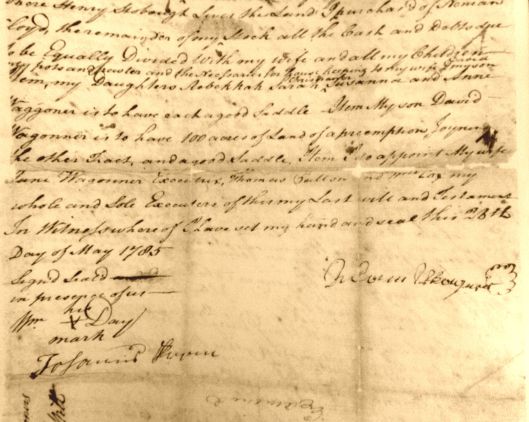 where Henry Stobaugh Lives the Land I purchased of Neman
Loyd, the remainder of my Stock all the Cash and Debts due
to be Equally Divided with my wife and all my Children
my pots and pewter and the Necessaries for house keeping to my wife
Item, my Daughters Rebekkah Sarah Susanna and Anne
Waggoner is to have each a good Saddle Item My son David
Wagonner is to have 100 acres of Land of a preemption Joyner
the other Tract, and a good Saddle, Item I so appoint My wife
Jane Wagonner Executrix, Thomas and Wm Cox my
whole and Sole Executors of this my Last will and Testament
In Witness whereof I have set my hand and seal this 28th
Day of May 1785
Signd Seald
in presence of us
Wm his Day
X
mark
Johannis